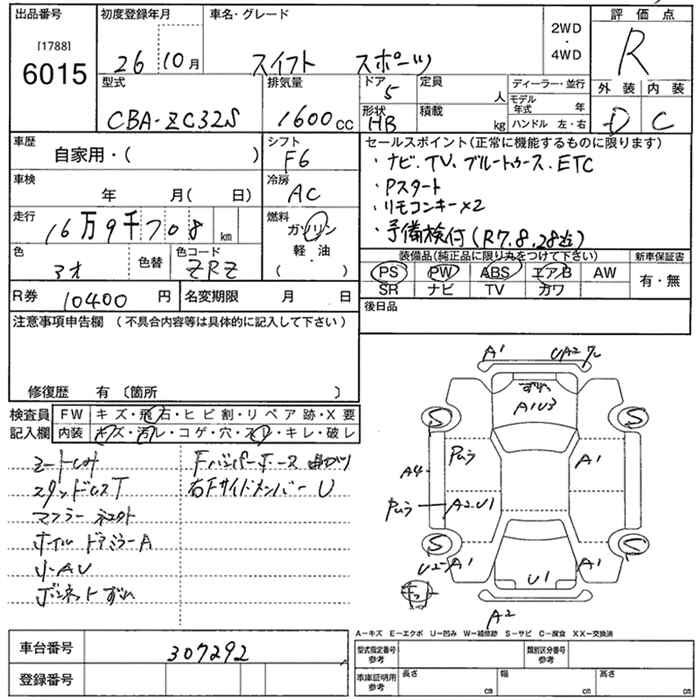 出品番号
[1788]
6015
初度登録年月
26 10月
車名・グレード
スイフト スポーツ
2WD
・
4WD
評価点
R
外装 内装
D C
型式
CBA-ZC32S
排気量
1600cc
ドア
5
定員
人
形状
HB
積載
kg
ディーラー・並行
モデル年式 年
ハンドル 左・右
車歴
自家用・( )
シフト
F6
車検
年 月( 日)
冷房
AC
走行
16万9千708 km
燃料
ガソリン
軽・油
( )
色
アオ
色替
色コード
ZRZ
R券 10400円
名変期限 月 日
セールスポイント(正常に機能するものに限ります)
・ナビ.TV.ブルートゥース.ETC
・Pスタート
・リモコンキー×2
・予備検付(R7.8.28迄)
装備品(純正品に限り丸をつけて下さい)
PS PW ABS エアB AW
SR ナビ TV カワ
新車保証書
有・無
後日品
注意事項申告欄 (不具合内容等は具体的に記入して下さい)
修復歴 有〔箇所 〕
検査員記入欄
FW キズ・飛石・ヒビ割・リペア跡・X要
内装 キズ・汚レ・コゲ・穴・スレ・キレ・破レ
シートしみ
スタッドレスT
マフラー
ホイル ドアミラーA
小AU
ボンネットずれ
Fバンパーホース 曲がり
右Fサイドメンバー U
A1
UA2
ずれ
A1U3
S
S
A4
A1
A2.U1
S
S
U2
A1
A1
U1
A2
A-キズ E-エクボ U-凹み W-補修跡 S-サビ C-腐食 XX-交換済
車台番号
307292
登録番号
型式指定番号
参考
類別区分番号
参考
車庫証明用
参考
長さ cm
幅 cm
高さ cm